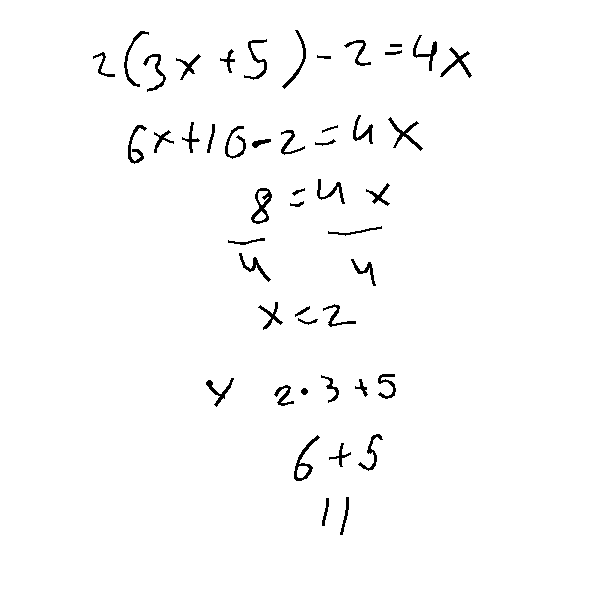 2(3x+5)-2=4x
6x+10-2=4x
8=4x
4 4
x=2
y 2·3+5
6+5
11